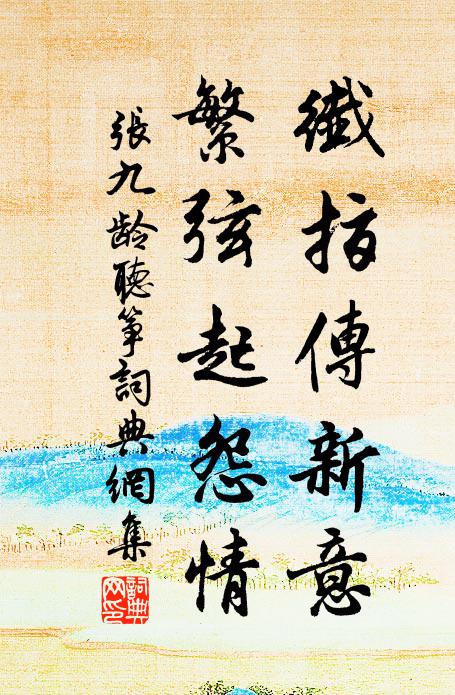 纖指傳新意
繁弦起怨情
張九齡聽箏詞典網集
詞典